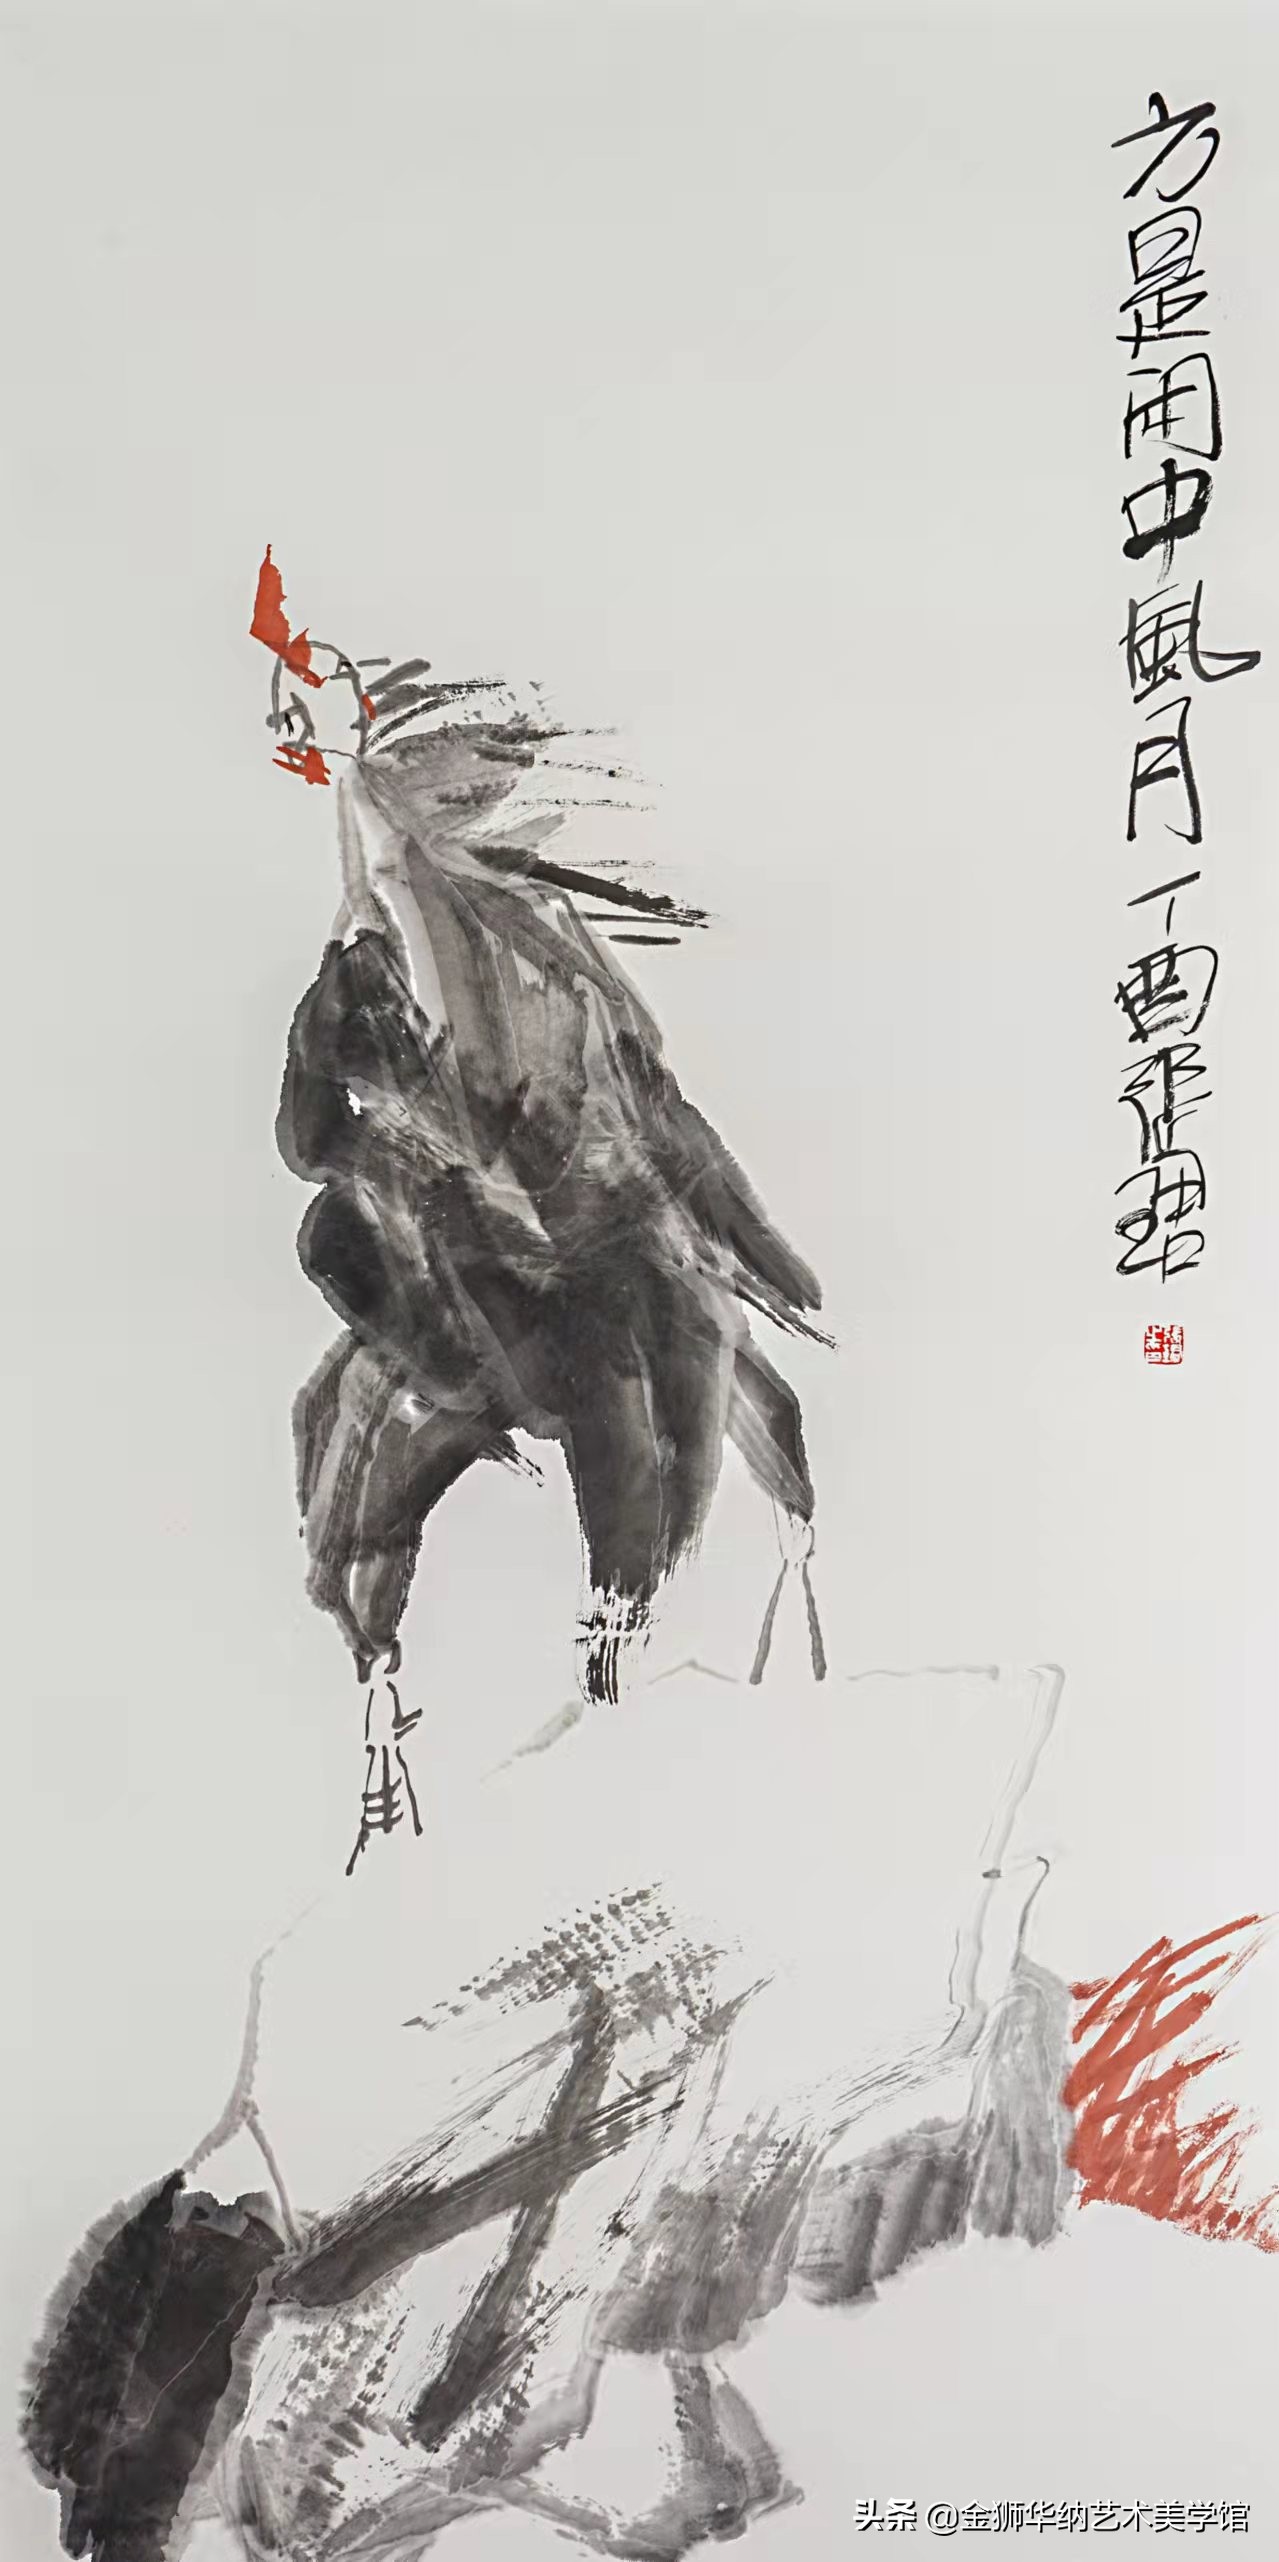 方是闲中風月丁酉張
头条 @金狮华纳艺术美学馆